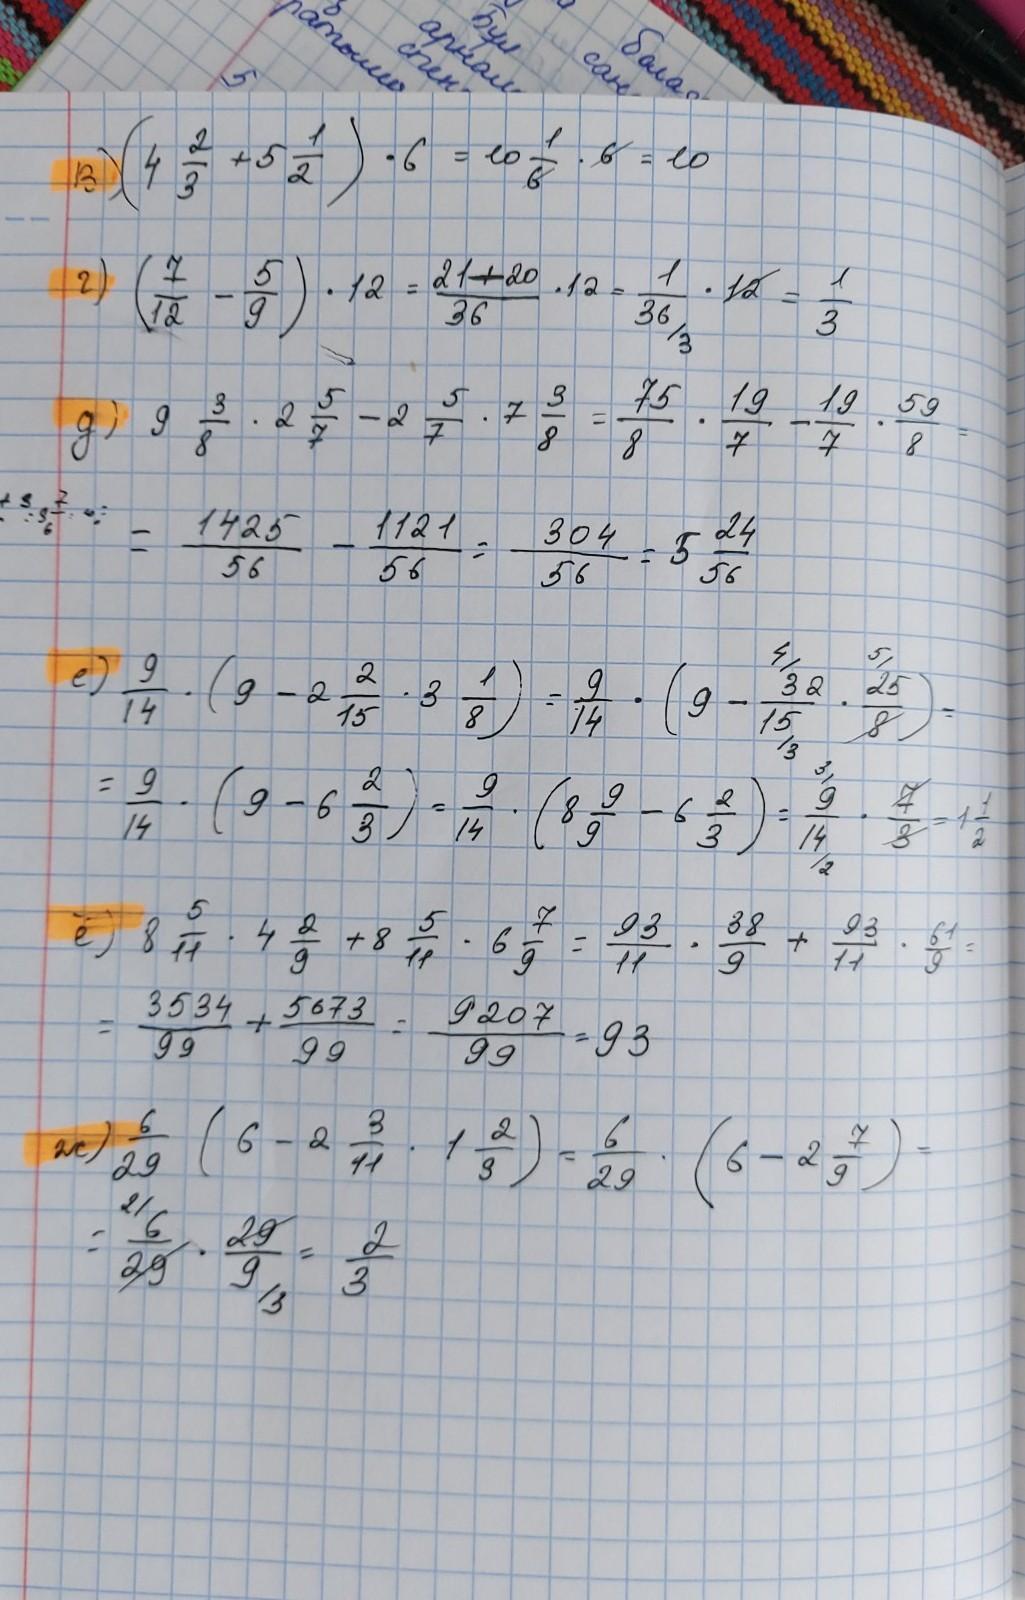 5
Бул
в) (4 2/3 + 5 1/2) · 6 = 10 1/6 · 6 = 10
г) (7/12 - 5/9) · 12 = 21+20/36 · 12 = 1/36/3 · 12 = 1/3
д) 9 3/8 · 2 5/7 - 2 5/7 · 7 3/8 = 75/8 · 19/7 - 19/7 · 59/8 =
= 1425/56 - 1121/56 = 304/56 = 5 24/56
е) 9/14 · (9 - 2 2/15 · 3 1/8) = 9/14 · (9 - 4/ 32/15 /3 · 5/ 25/8) =
= 9/14 · (9 - 6 2/3) = 9/14 · (8 9/9 - 6 2/3) = 3/ 9/14 /2 · 7/3 = 1 1/2
ё) 8 5/11 · 4 2/9 + 8 5/11 · 6 7/9 = 93/11 · 38/9 + 93/11 · 61/9 =
= 3534/99 + 5673/99 = 9207/99 = 93
ж) 6/29 (6 - 2 3/11 · 1 2/9) = 6/29 · (6 - 2 7/9) =
= 2/ 6/29 · 29/9 /3 = 2/3